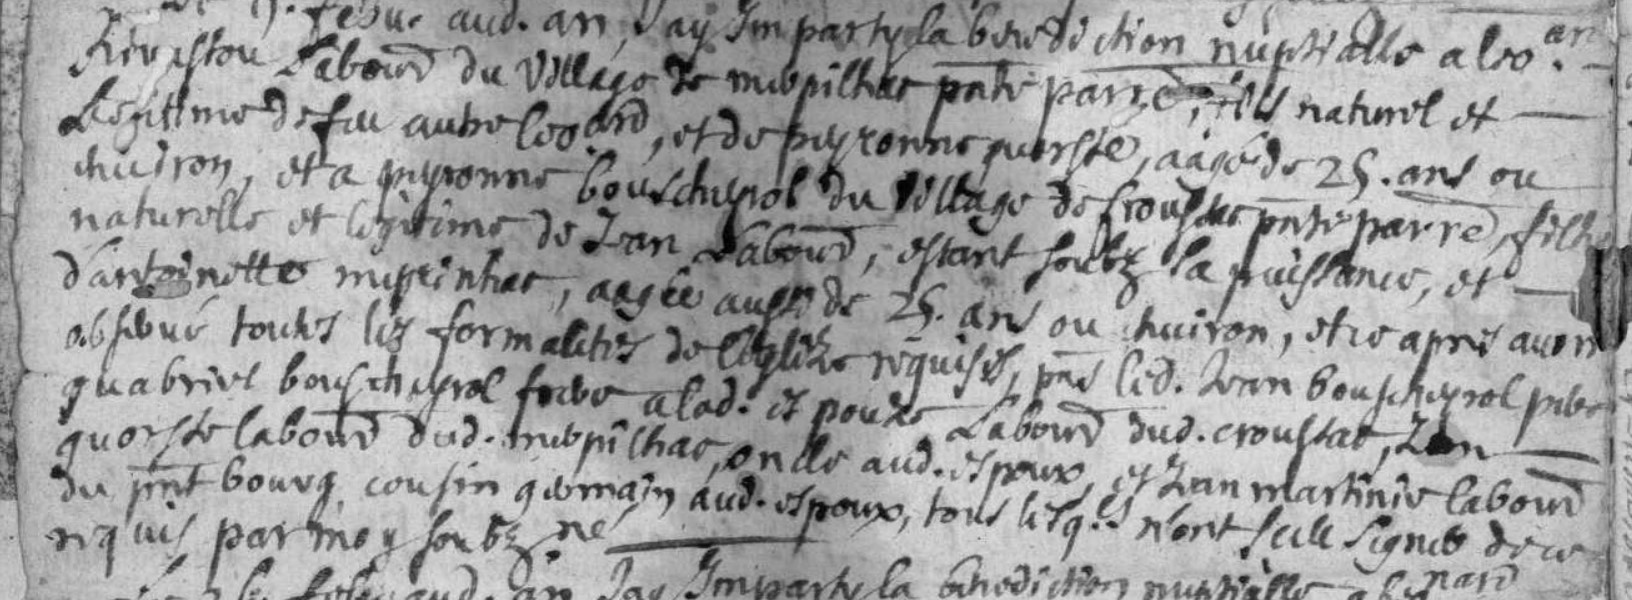 febvr. aud. an, Jay Imparty la benediction nuptialle a leo.ard
Labourr du village de pnte parre, fils naturel et
Legittime de feu autre leo.ard, et de peyronne quorste, aagé de 25. ans ou
environ, et a peyronne bouscheyrol du village de croustac pnte parre, filhe
naturelle et legitime de Jean Labourr, estant soubz sa puissance, et
d'antoinette, aagée aussy de 25. ans ou environ, et ce apres avoir
observé toutes les formalites de l'esglize requises, pns led. Jean bouscheyrol pere
quabriel bouscheyrol frere a lad. espouze Labourr dud. croustac, Jean
quorste labourr dud. oncle aud. espoux, et Jean martinie labourr
du pnt bourg cousin germain aud. espoux, tous lesqls n'ont sceu signer de ce
requis par moy soubzne
febvr. aud. an Jay Imparty la benediction nuptialle a leonard